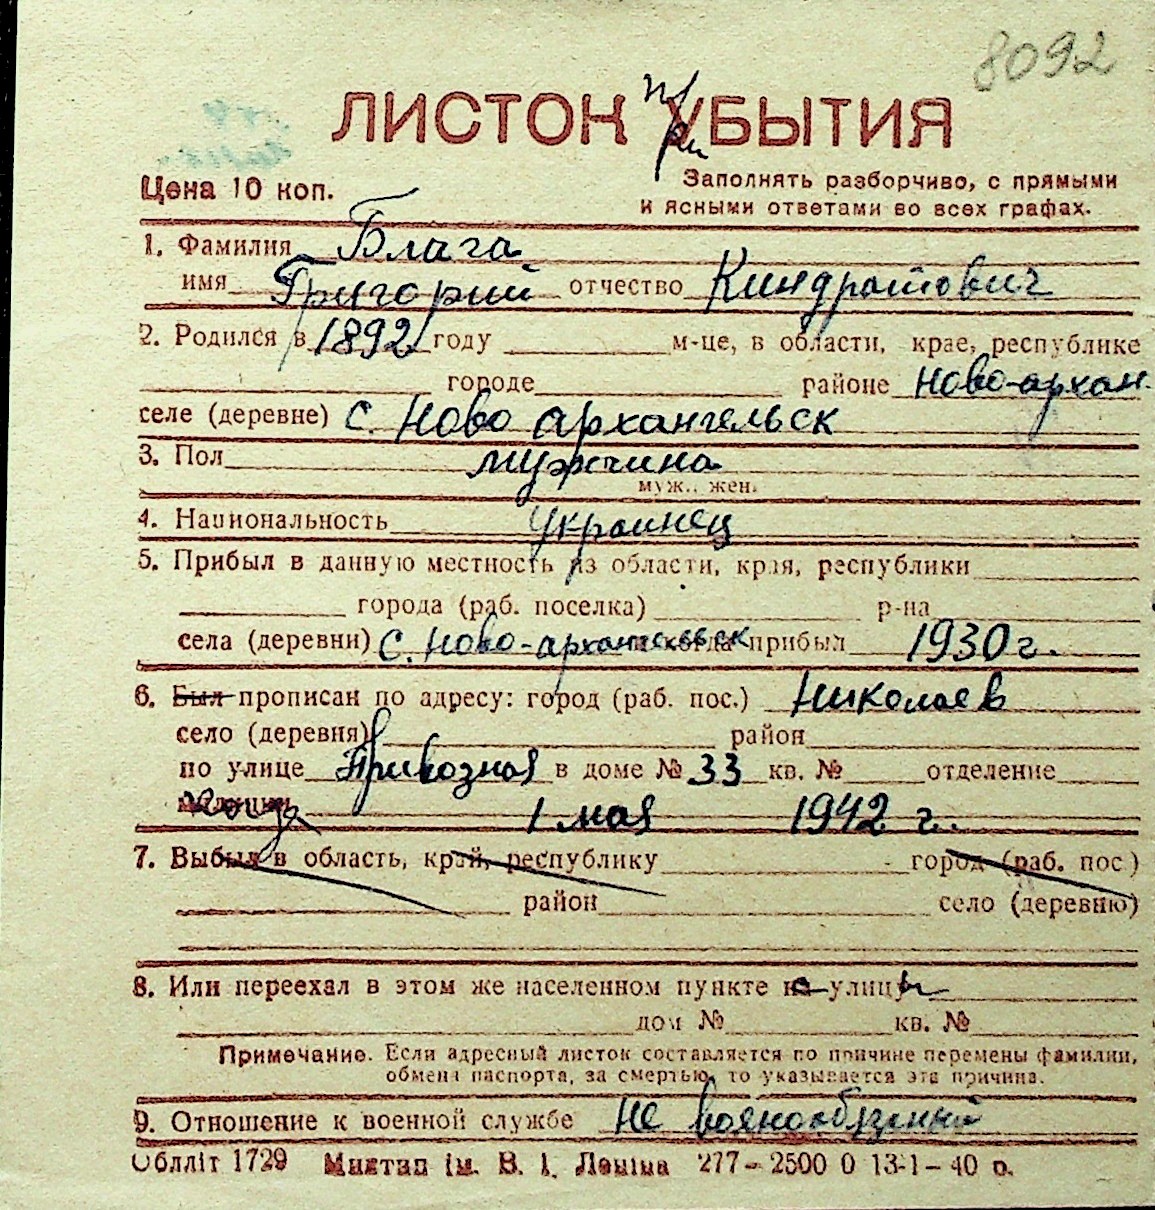 8092
ЛИСТОК При УБЫТИЯ
Цена 10 коп.
Заполнять разборчиво, с прямыми
и ясными ответами во всех графах.
1. Фамилия Блага
имя Григорий отчество Киндратович
2. Родился в 1892 году м-це, в области, крае, республике
городе районе Ново-архан.
селе (деревне) с. Ново архангельск
3. Пол мужчина
муж., жен.
4. Национальность украинец
5. Прибыл в данную местность из области, края, республики
города (раб. поселка) р-на
села (деревни) с. Ново-архангельск когда прибыл 1930 г.
6. Был прописан по адресу: город (раб. пос.) Николаев
село (деревня) район
по улице Привозная в доме № 33 кв. № отделение
милиции когда 1 мая 1942 г.
7. Выбыл в область, край, республику город (раб. пос.)
район село (деревню)
8. Или переехал в этом же населенном пункте на улицы
дом № кв. №
Примечание. Если адресный листок составляется по причине перемены фамилии,
обмена паспорта, за смертью, то указывается эта причина.
9. Отношение к военной службе не воянообязенный
Обллiт 1729 Миктип iм. В. I. Ленiна 277–2500 0 13-1–40 р.